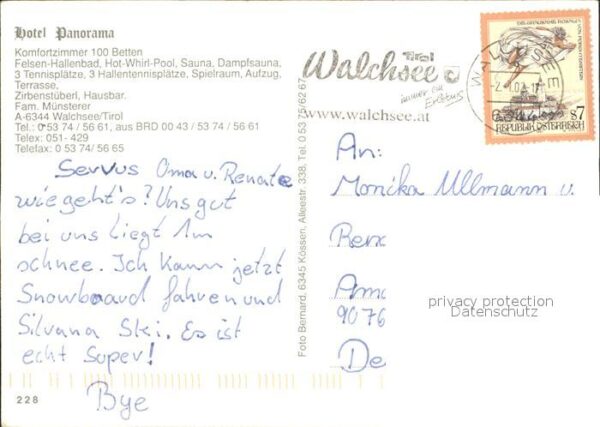 Hotel Panorama
Komfortzimmer 100 Betten
Felsen-Hallenbad, Hot-Whirl-Pool, Sauna, Dampfsauna,
3 Tennisplätze, 3 Hallentennisplätze, Spielraum, Aufzug,
Terrasse,
Zirbenstüberl, Hausbar.
Fam. Münsterer
A-6344 Walchsee/Tirol
Tel.: 053 74 / 56 61, aus BRD 00 43 / 53 74 / 56 61
Telex: 051- 429
Telefax: 0 53 74/ 56 65
Servus Oma u. Renate
wie geht's? Uns gut
bei uns liegt 1m
schnee. Ich kann jetzt
Snowboard fahren und
Silvana Ski. Es ist
echt super!
Bye
228
Foto Bernard, 6345 Kössen, Alleestr. 338, Tel. 0 53 75/62 67
Tirol
Walchsee
immer ein
Erlebnis
www.walchsee.at
REPUBLIK ÖSTERREICH
s7
An:
Monika Ullmann u.
Ren
9076
De
privacy protection
Datenschutz